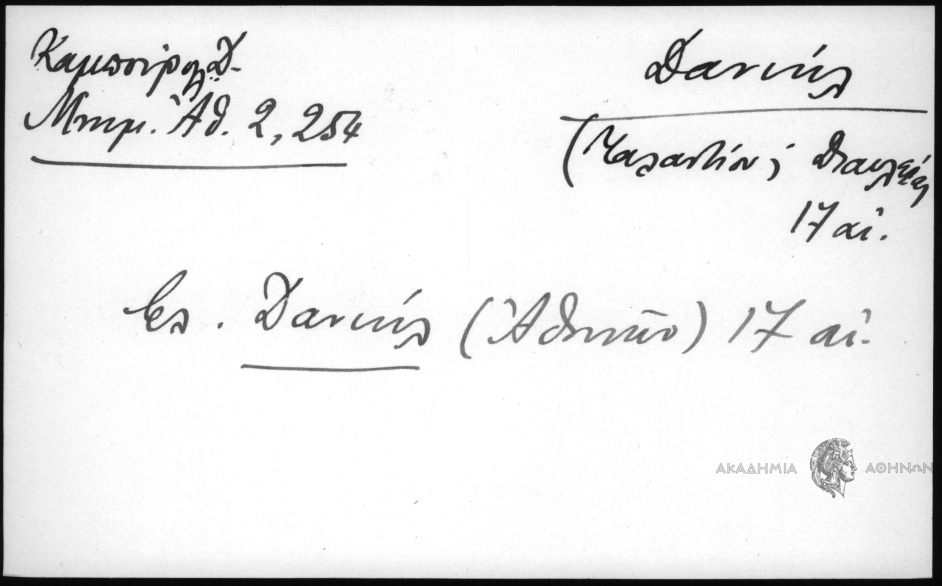 Καμπούρογλ. Δ.
Μνημ. Ἀθ. 2, 254
Δανιήλ
(Ταλαντίου; Διαυλείας
17 αἰ.
βλ. Δανιήλ (Ἀθηνῶν) 17 αἰ.
ΑΚΑΔΗΜΙΑ ΑΘΗΝΩΝ